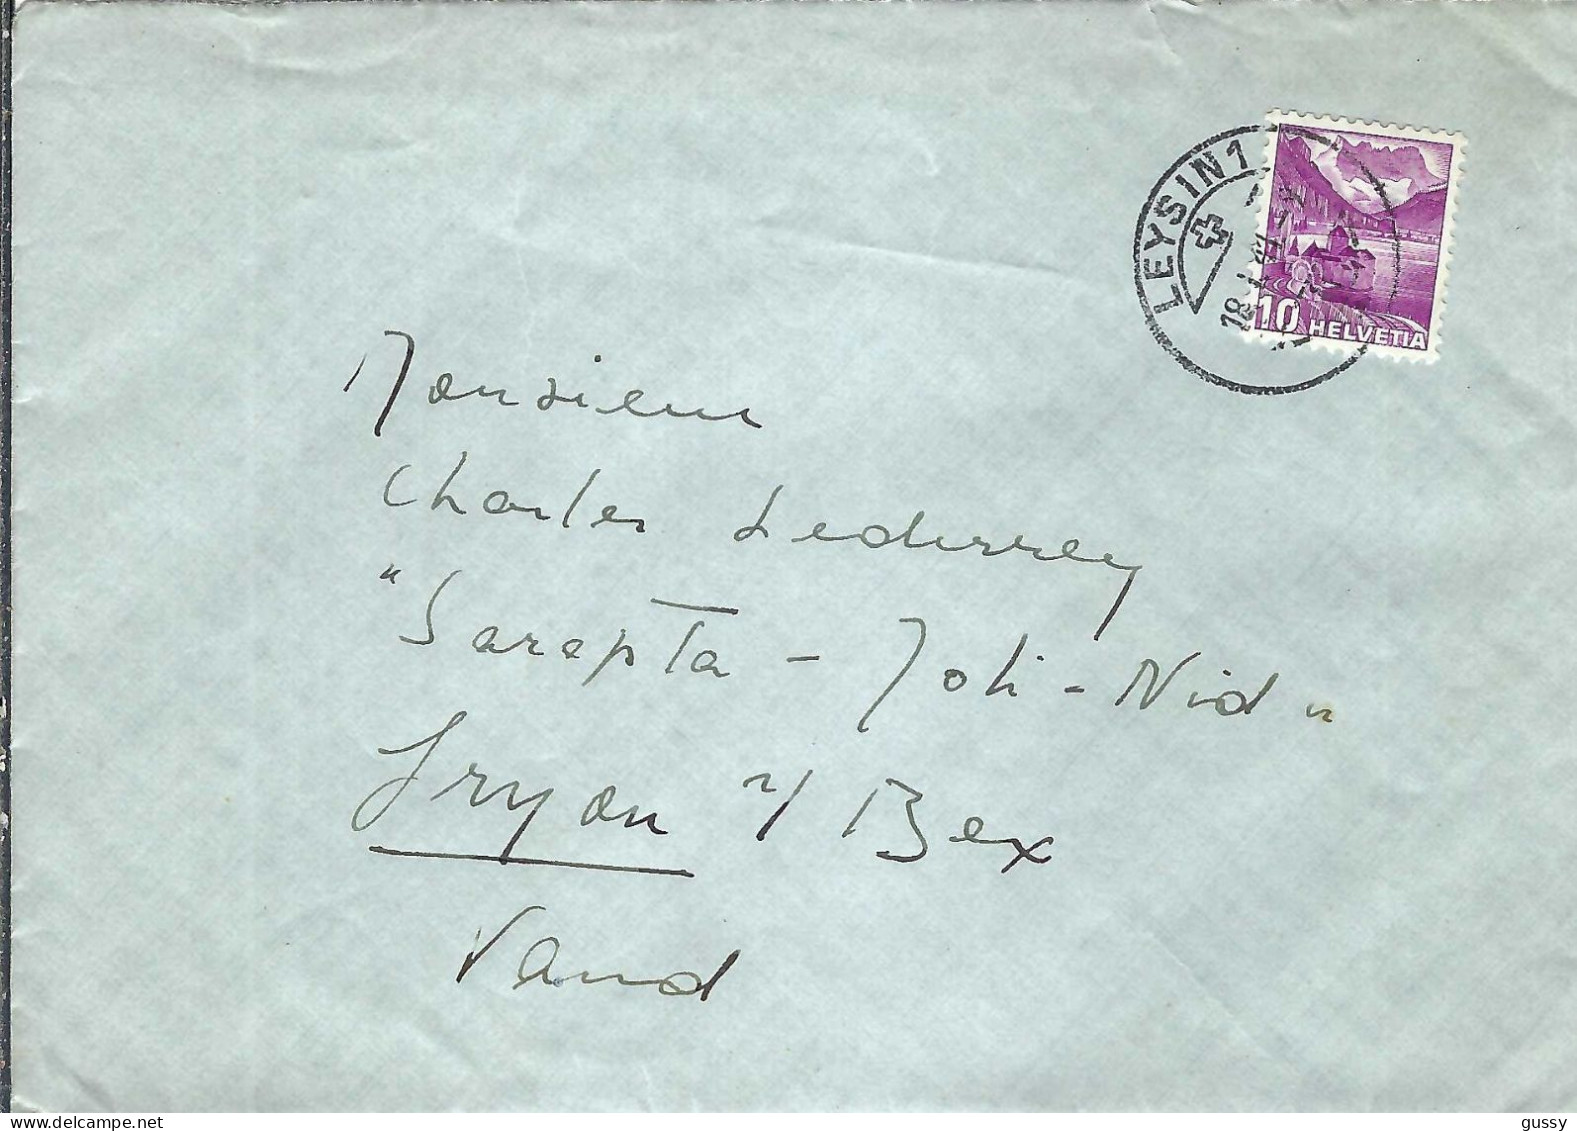 LEYSIN 1
18.
10 HELVETIA
Monsieur
Charles Lederrey
"Sarepta - Joli - Nid"
Gryon s/ Bex
Vaud
gussy